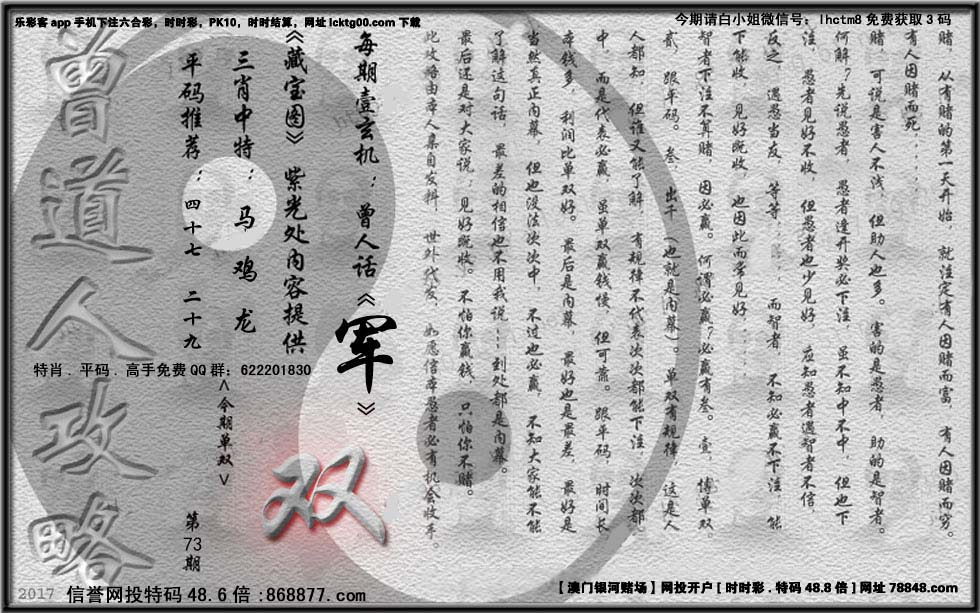 乐彩客app手机下注六合彩，时时彩，PK10，时时结算，网址lcktg00.com下载
今期请白小姐微信号：lhctm8免费获取3码
赌，从有赌的第一天开始，就注定有人因赌而富，有人因赌而穷。
有人因赌而死......
赌，可说是害人不浅，但助人也多。害的是愚者，助的是智者。
何解？先说愚者，愚者逢开奖必下注，虽不知中不中，但也下
注，愚者见好不收，但愚者也少见好，应知愚者遇智者不信，
反之，遇愚当友，等等......而智者，不知必赢不下注，能
下能收，见好既收，也因此而常见好......
智者下注不算赌，因必赢。何谓必赢？必赢有叁。壹，博单双，
贰，跟平码。叁，出千（也就是内幕）。单双有规律，这是人
人都知，但谁又能了解，有规律不代表次次都能下注，次次都
中，而是代表必赢，虽单双赢钱慢，但可靠。跟平码，时间长，
本钱多，利润比单双好。最后是内幕，最好也是最差，最好是
当然真正内幕，但也没法次次中，不过也必赢，不知大家能不能
了解这句话，最差的相信也不用我说......到处都是内幕。
最后还是对大家说：见好既收。不怕你赢钱，只怕你不赌。
此攻略由本人集自发辑，世外代发，如愿信本愚者必有机会收手。
每期壹玄机：曾人话《军》
《藏宝图》紫光处内容提供
三肖中特：马 鸡 龙
平码推荐：四十七 二十九
特肖．平码．高手免费QQ群：622201830
<今期单双>
双
第73期
曾道人攻略
2017 信誉网投特码48.6倍:868877.com
【澳门银河赌场】网投开户[时时彩.特码48.8倍]网址78848.com